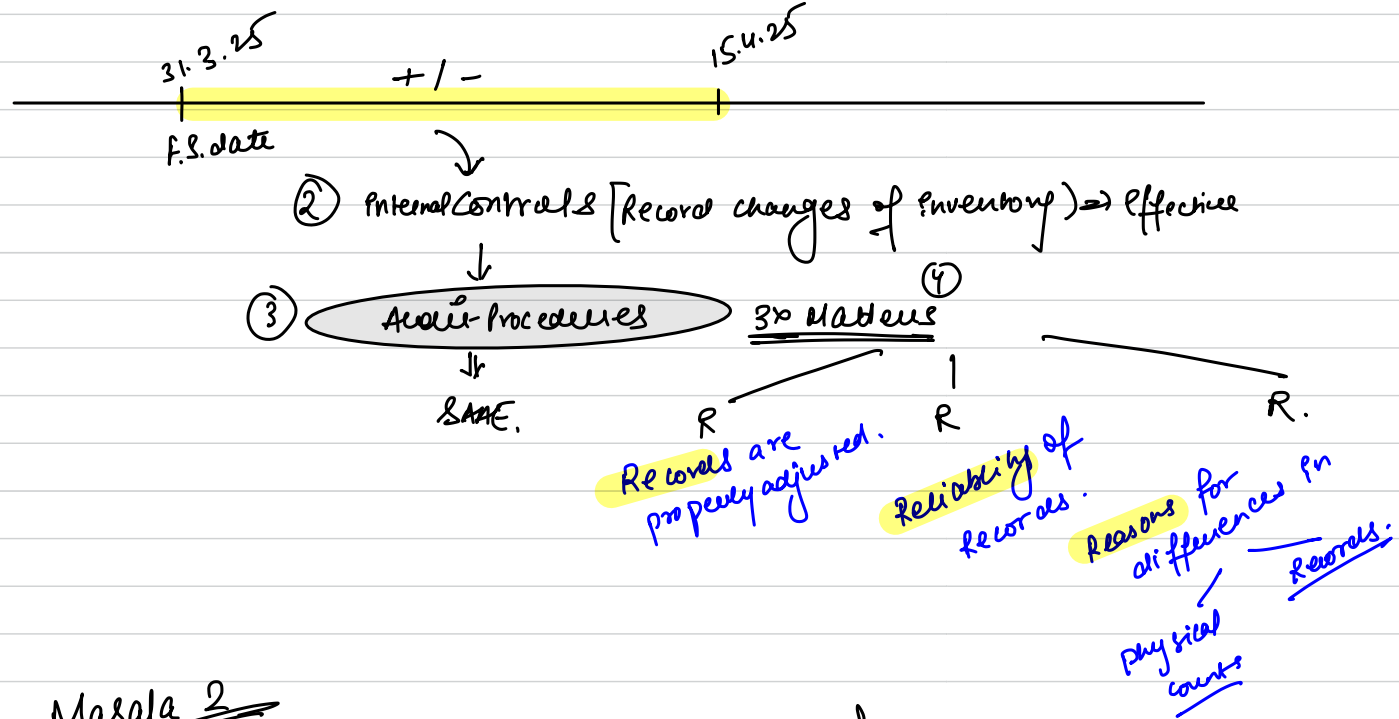 31.3.25
15.4.25
+/-
F.S. date
② Internal Controls [Record changes of inventory) => Effective
③ Audit Procedures
④
3R Matters
SAAE.
R R R.
Records are
properly adjusted.
Reliability of
records.
Reasons for
differences in
Records.
physical
counts
Masala 2